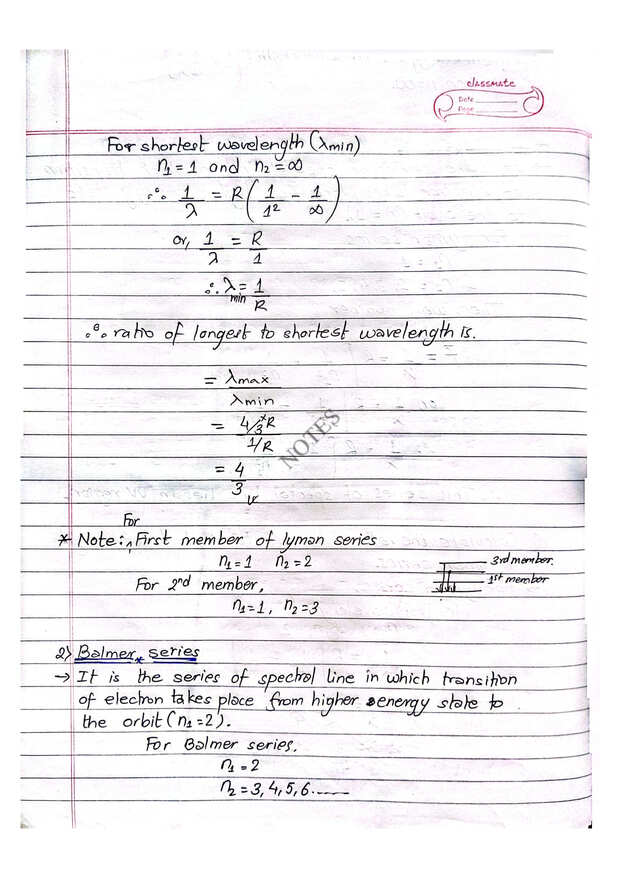 classmate
Date
Page
For shortest wavelength (λmin)
n₁ = 1 and n₂ = ∞
∴ 1/λ = R(1/1² - 1/∞)
or, 1/λ = R/1
∴ λmin = 1/R
∴ ratio of longest to shortest wavelength is.
= λmax/λmin
= 4/3×R / 1/R
= 4/3
NOTES
* Note: For First member of lyman series
n₁ = 1 n₂ = 2
3rd member.
1st member
For 2nd member,
n₁ = 1, n₂ = 3
2) Balmer series
→ It is the series of spectral line in which transition
of electron takes place from higher energy state to
the orbit (n₁ = 2).
For Balmer series.
n₁ = 2
n₂ = 3, 4, 5, 6 ......